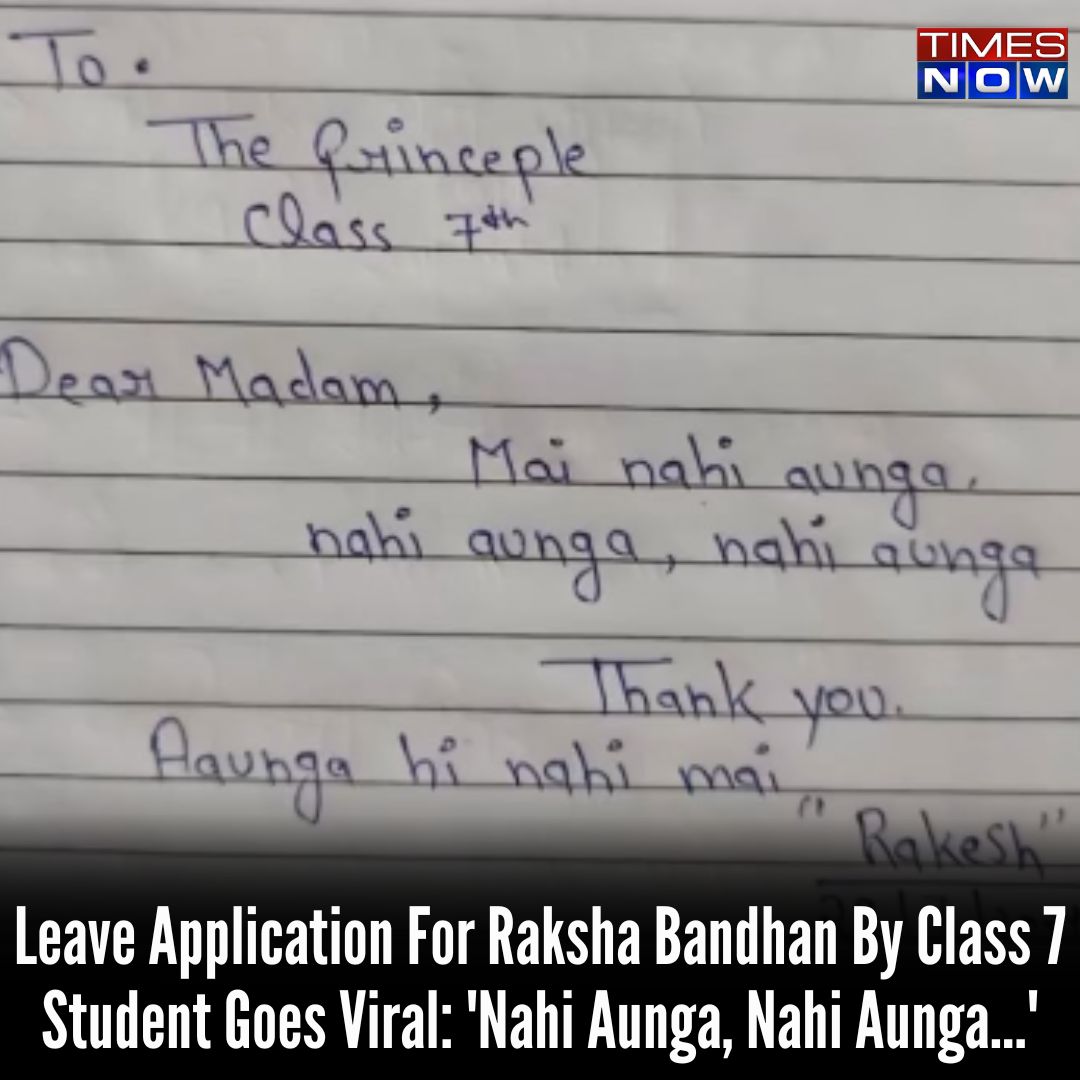 TIMES
NOW
To.
The Princeple
Class 7th
Dear Madam,
Mai nahi aunga.
nahi aunga, nahi aunga
Thank you.
Aaunga hi nahi mai
"Rakesh"
Leave Application For Raksha Bandhan By Class 7
Student Goes Viral: 'Nahi Aunga, Nahi Aunga...'